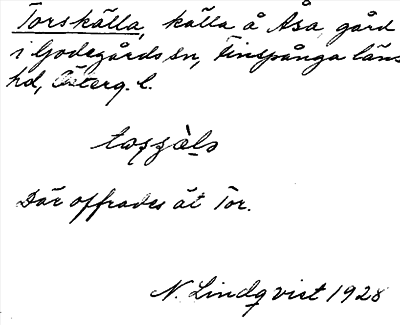 Torskälla, källa å Åsa gård
i Godegårds sn, Finspånga läns
hd, Österg. l.
Där offrades åt Tor.
N. Lindqvist 1928